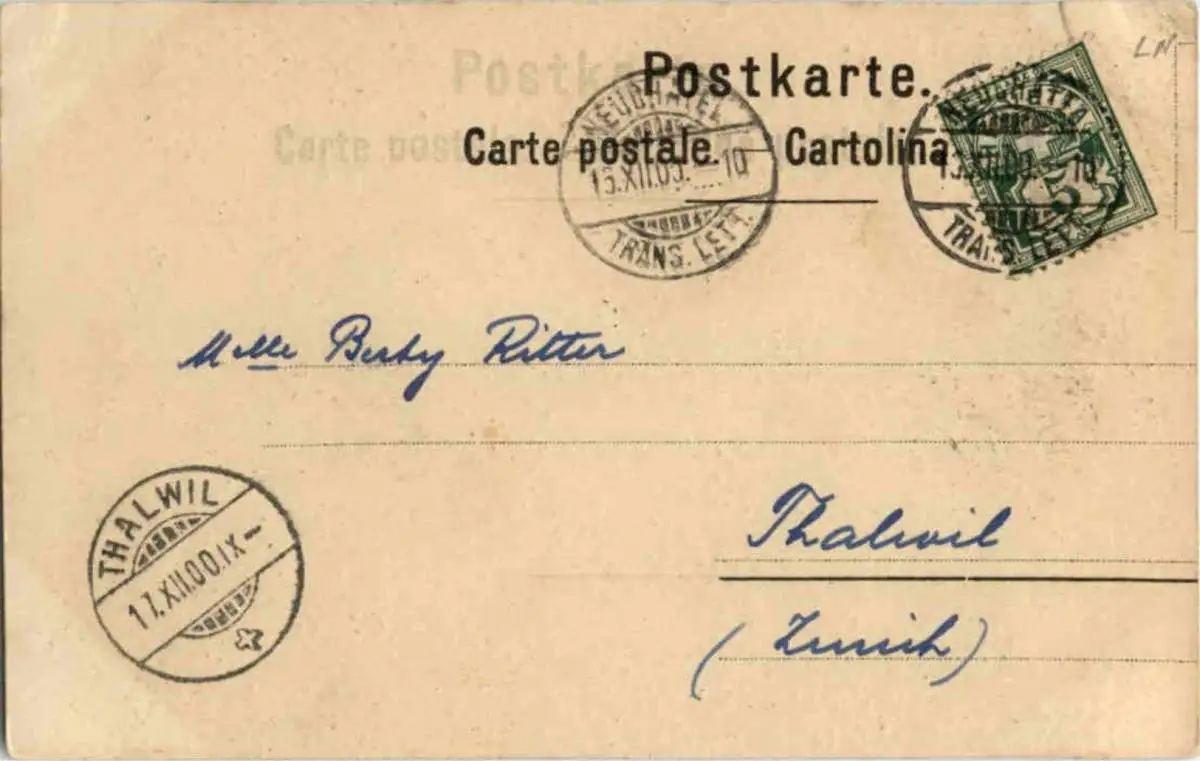 LN
Postkarte.
Carte postale. — Cartolina
NEUCHATEL
XII.00. – 10
TRANS. LETT.
NEUCHATEL
XII.00. – 10
TRANS. LETT.
5
Melle Berty Ritter
Thalwil
(Zurich)
THALWIL
17.XII.00.IX –